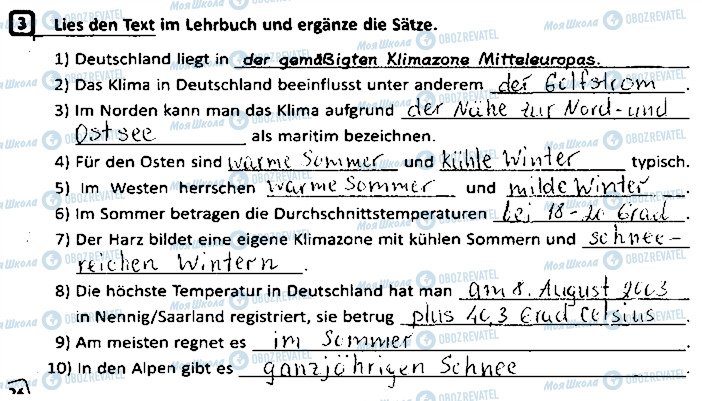 3 Lies den Text im Lehrbuch und ergänze die Sätze.
1) Deutschland liegt in der gemäßigten Klimazone Mitteleuropas.
2) Das Klima in Deutschland beeinflusst unter anderem der Golfstrom.
3) Im Norden kann man das Klima aufgrund der Nähe zur Nord- und
Ostsee als maritim bezeichnen.
4) Für den Osten sind warme Sommer und kühle Winter typisch.
5) Im Westen herrschen warme Sommer und milde Winter.
6) Im Sommer betragen die Durchschnittstemperaturen bei 18-20 Grad.
7) Der Harz bildet eine eigene Klimazone mit kühlen Sommern und schnee-
reichen Wintern.
8) Die höchste Temperatur in Deutschland hat man am 8. August 2003
in Nennig/Saarland registriert, sie betrug plus 40,3 Grad Celsius.
9) Am meisten regnet es im Sommer.
10) In den Alpen gibt es ganzjährigen Schnee.